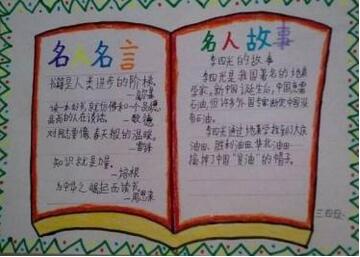 名人名言
书籍是人类进步的阶梯。
—高尔基
读一本好书，就仿佛和一个品德
高尚的人在谈话。
—歌德
对同志要像春天般的温暖。
—雷锋
知识就是力量。
—培根
为中华之崛起而读书。
—周恩来
名人故事
李四光的故事
李四光是我国著名的地质
学家，新中国诞生后，中国急需
石油，但许多外国专家断定中国没
有石油。
李四光通过地质学找到了大庆
油田、胜利油田、华北油田
摘掉了中国“贫油”的帽子。